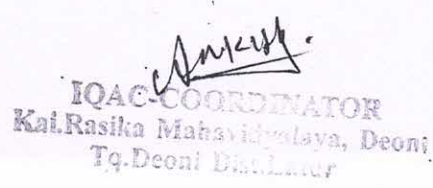 IQAC-COORDINATOR
Kai.Rasika Mahavidyalaya, Deoni
Tq.Deoni Dist.Latur